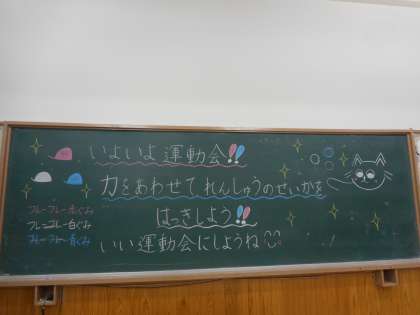 いよいよ運動会!!
力をあわせてれんしゅうのせいかを
はっきしよう!!
いい運動会にしようね
フレーフレー赤ぐみ
フレーフレー白ぐみ
フレーフレー青ぐみ